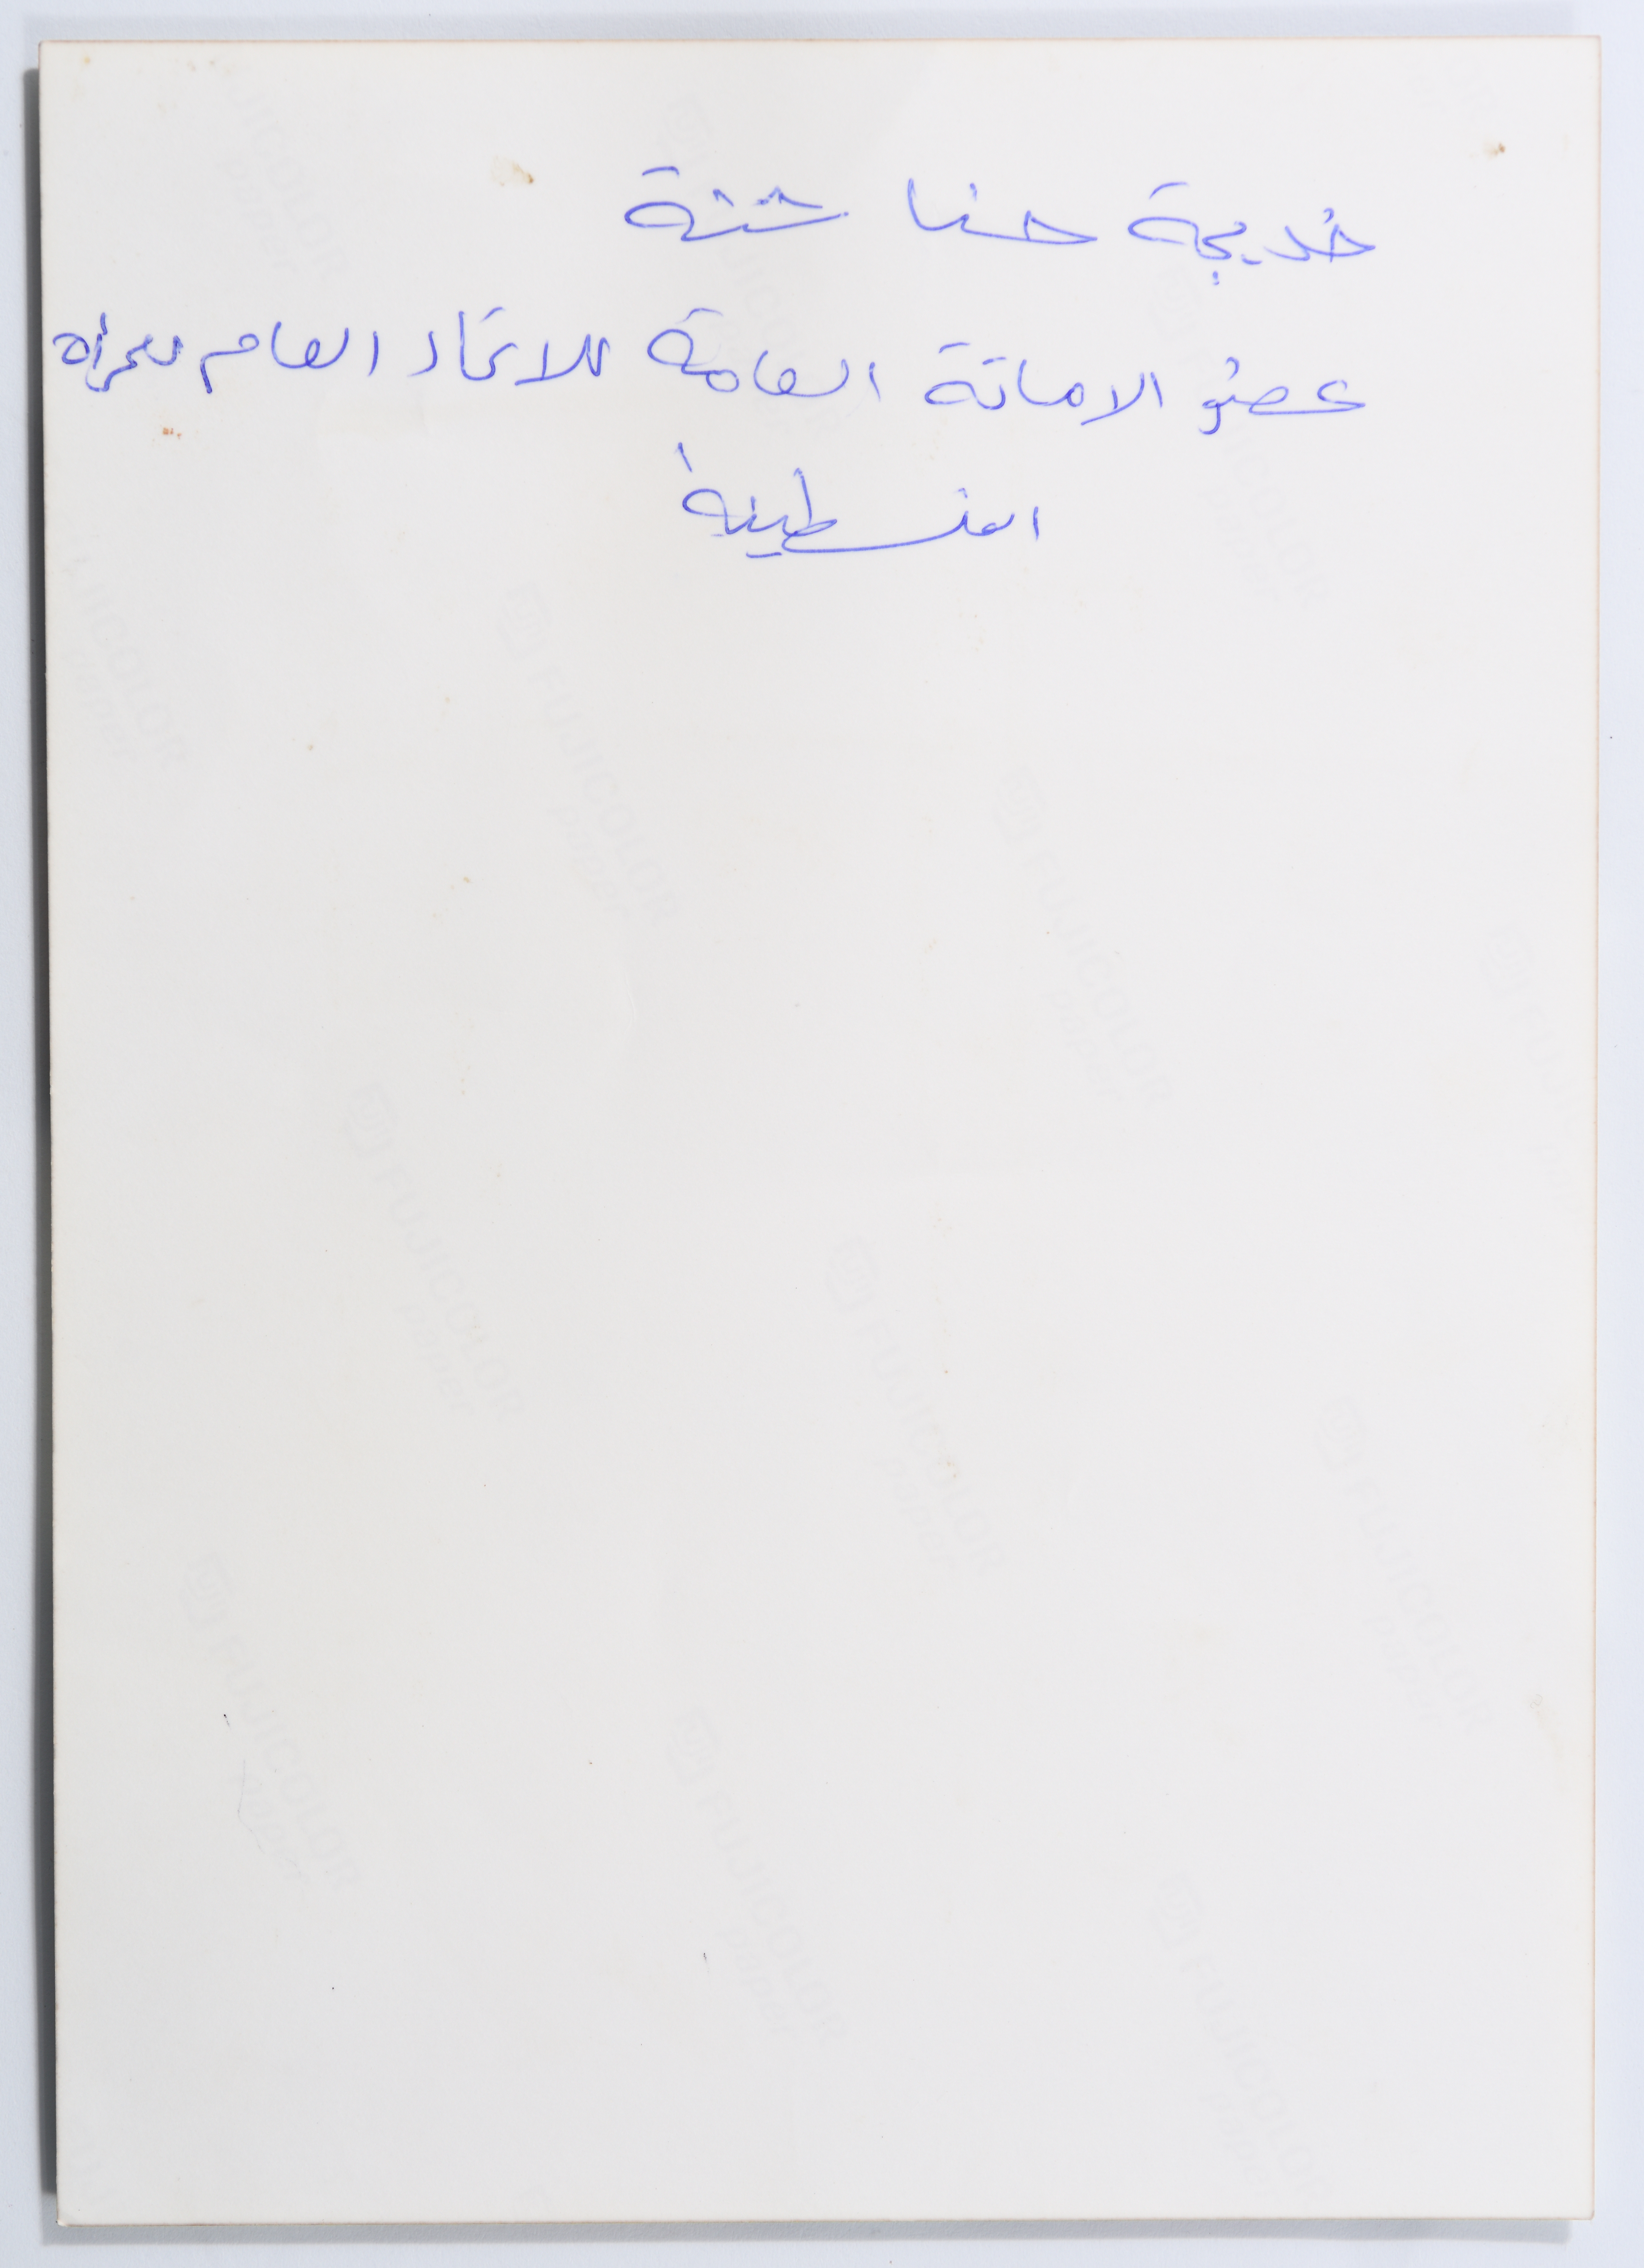 خديجة حنا شتة
عضو الامانة العامة للاتحاد العام للمرأة
الفلسطينية
FUJICOLOR
paper